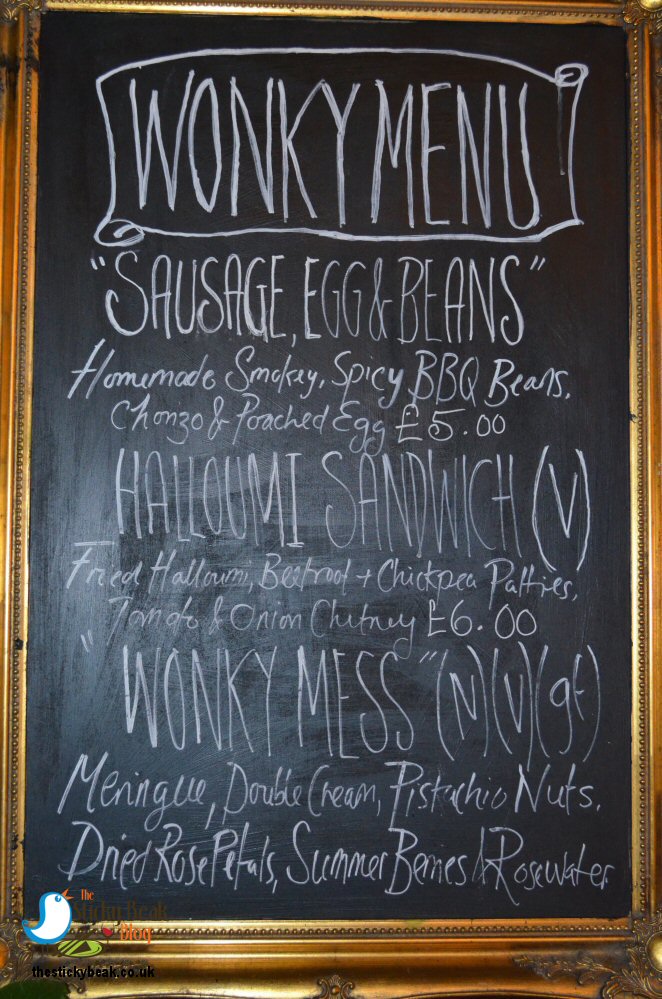 WONKY MENU
"SAUSAGE, EGG & BEANS"
Homemade Smokey, Spicy BBQ Beans,
Chorizo & Poached Egg £5.00
HALLOUMI SANDWICH (V)
Fried Halloumi, Beetroot + Chickpea Patties,
Tomato & Onion Chutney £6.00
"WONKY MESS" (N)(V)(gf)
Meringue, Double Cream, Pistachio Nuts,
Dried Rose Petals, Summer Berries & Rosewater
The
Sticky Beak
Blog
thestickybeak.co.uk